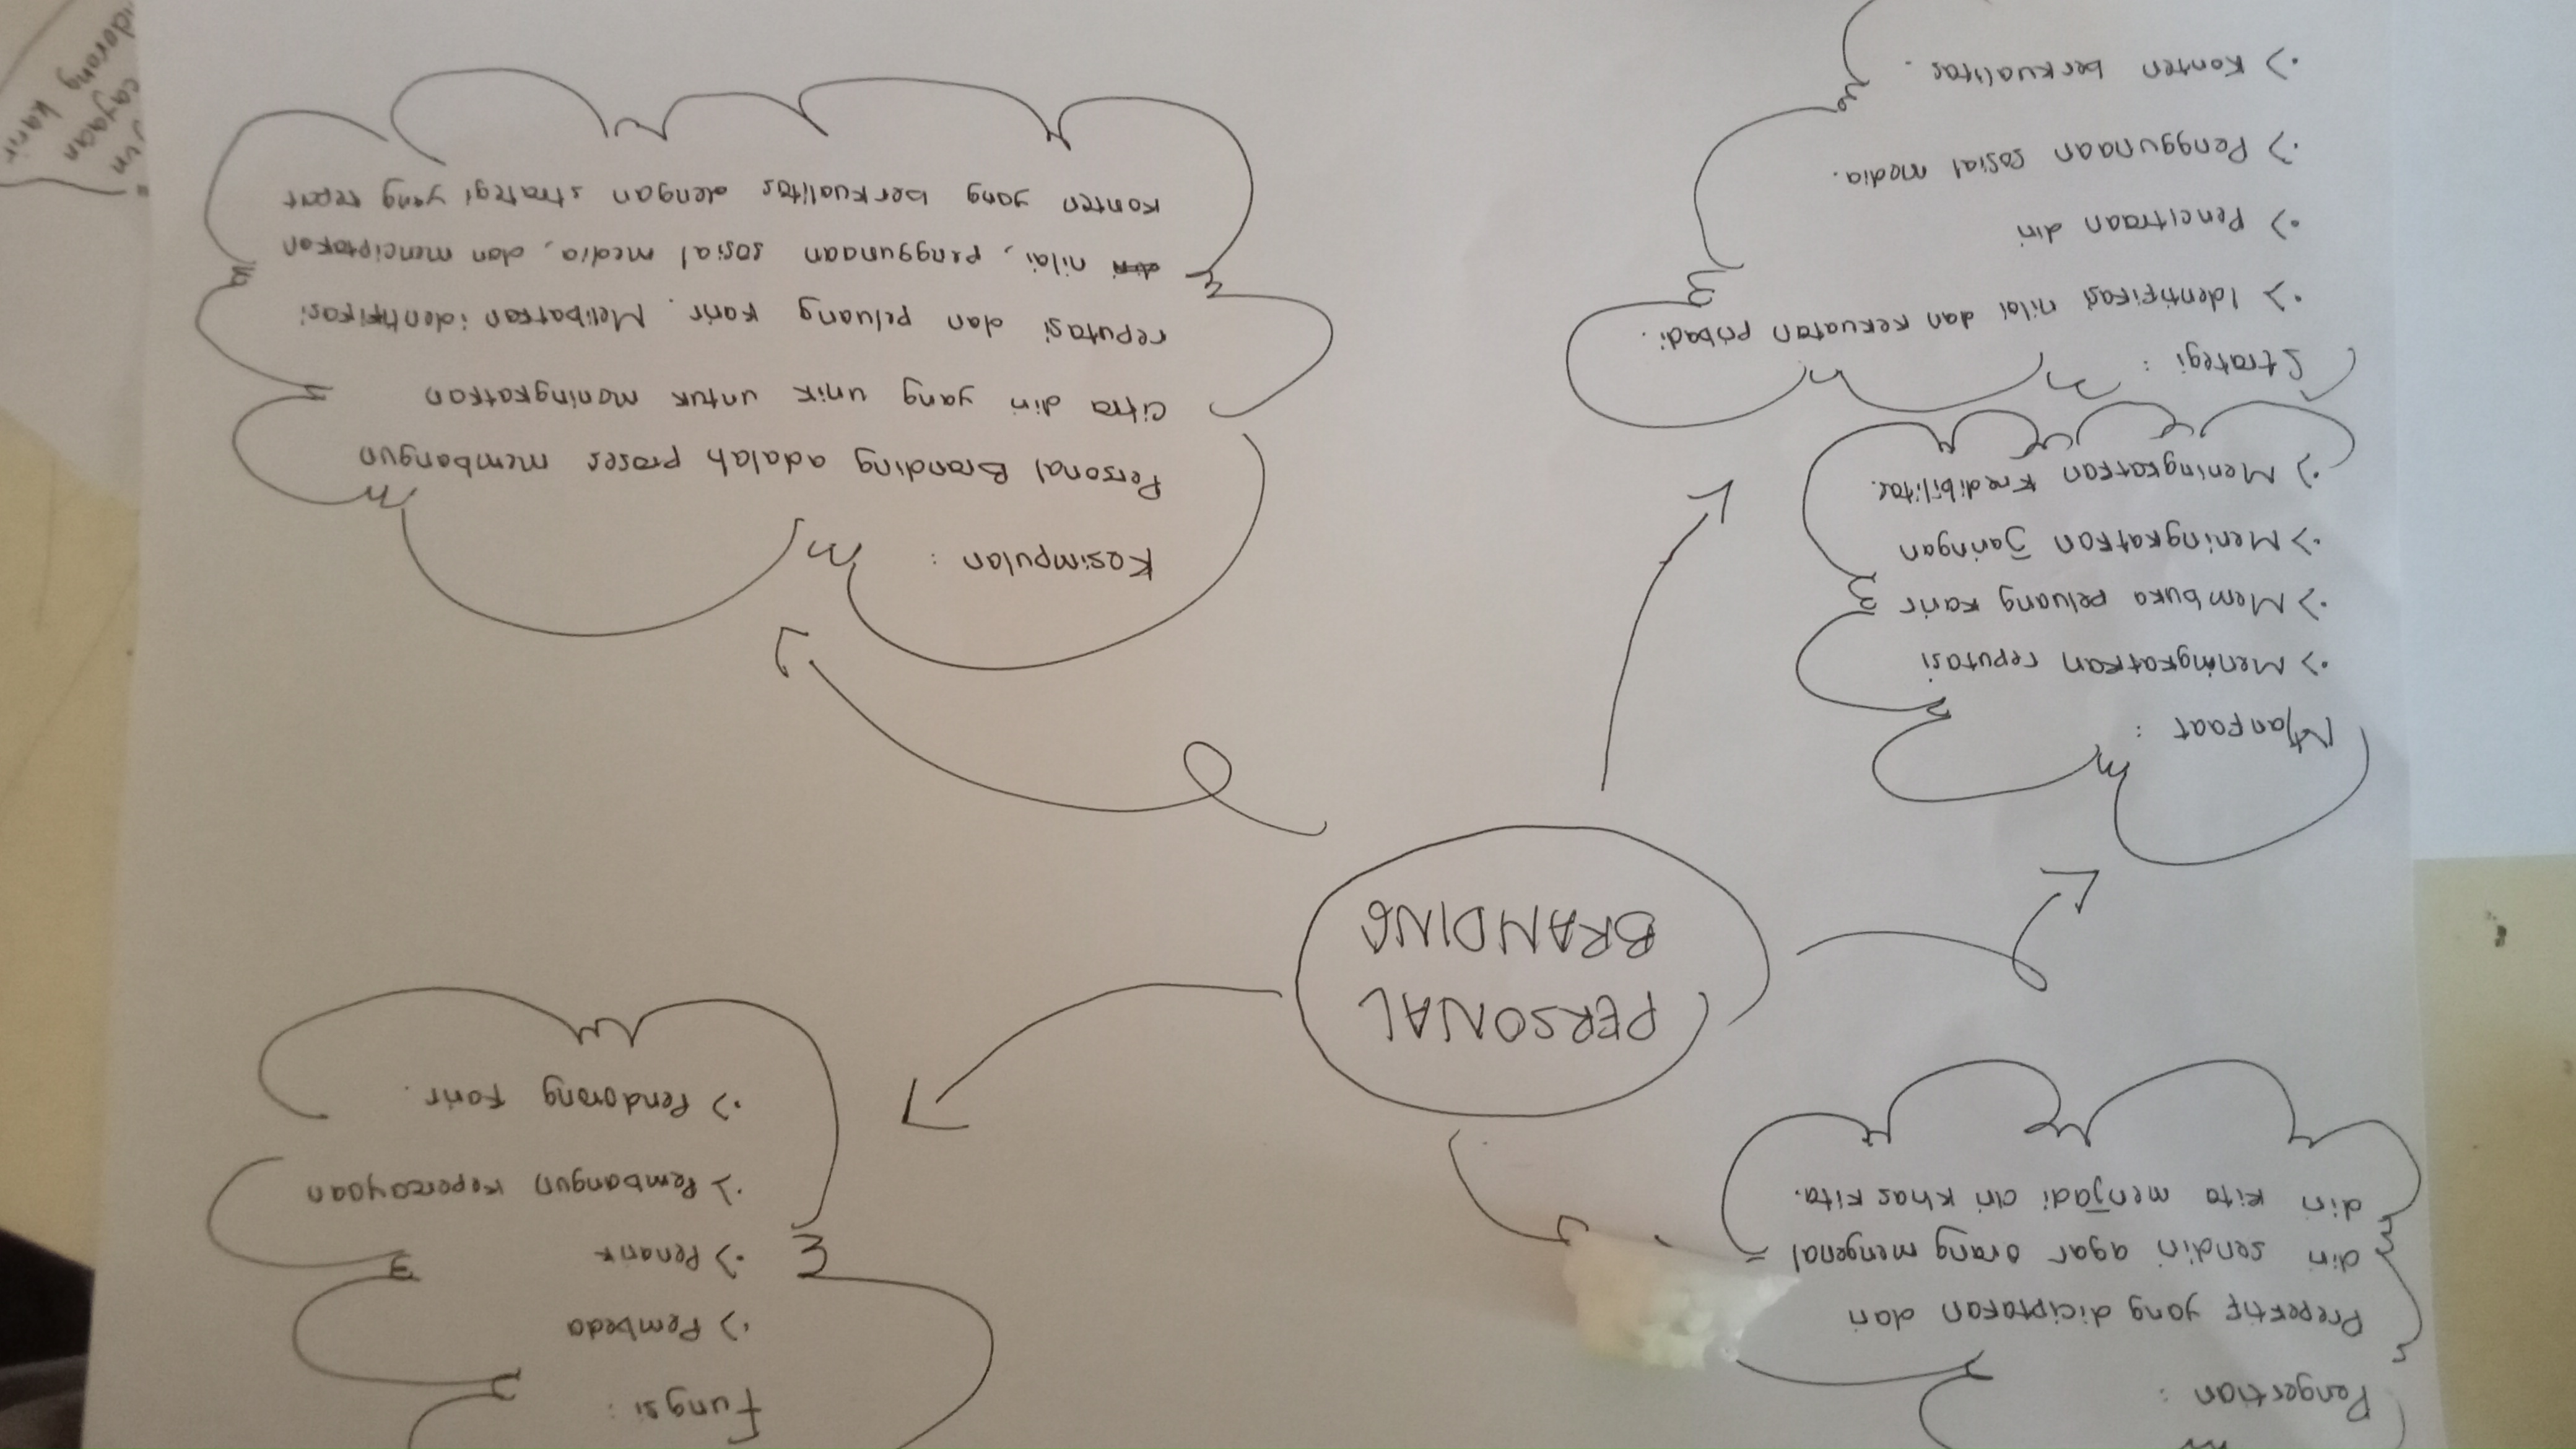 Pengertian :
Prepektif yang diciptakan dari
diri sendiri agar orang mengenal
diri kita menjadi ciri khas kita.
Fungsi :
•> Pembeda
•> Penarik
•> Pembangun kepercayaan
•> Pendorong karir.
PERSONAL
BRANDING
Manfaat :
•> Meningkatkan reputasi
•> Membuka peluang karir
•> Meningkatkan jaringan
•> Meningkatkan kredibilitas.
Strategi :
•> Identifikasi nilai dan kekuatan pribadi.
•> Pencitraan diri
•> Penggunaan sosial media.
•> Konten berkualitas.
Kesimpulan :
Personal Branding adalah proses membangun
citra diri yang unik untuk meningkatkan
reputasi dan peluang karir. Melibatkan identifikasi
nilai, penggunaan sosial media, dan menciptakan
konten yang berkualitas dengan strategi yang tepat
cayaan
dorong karir